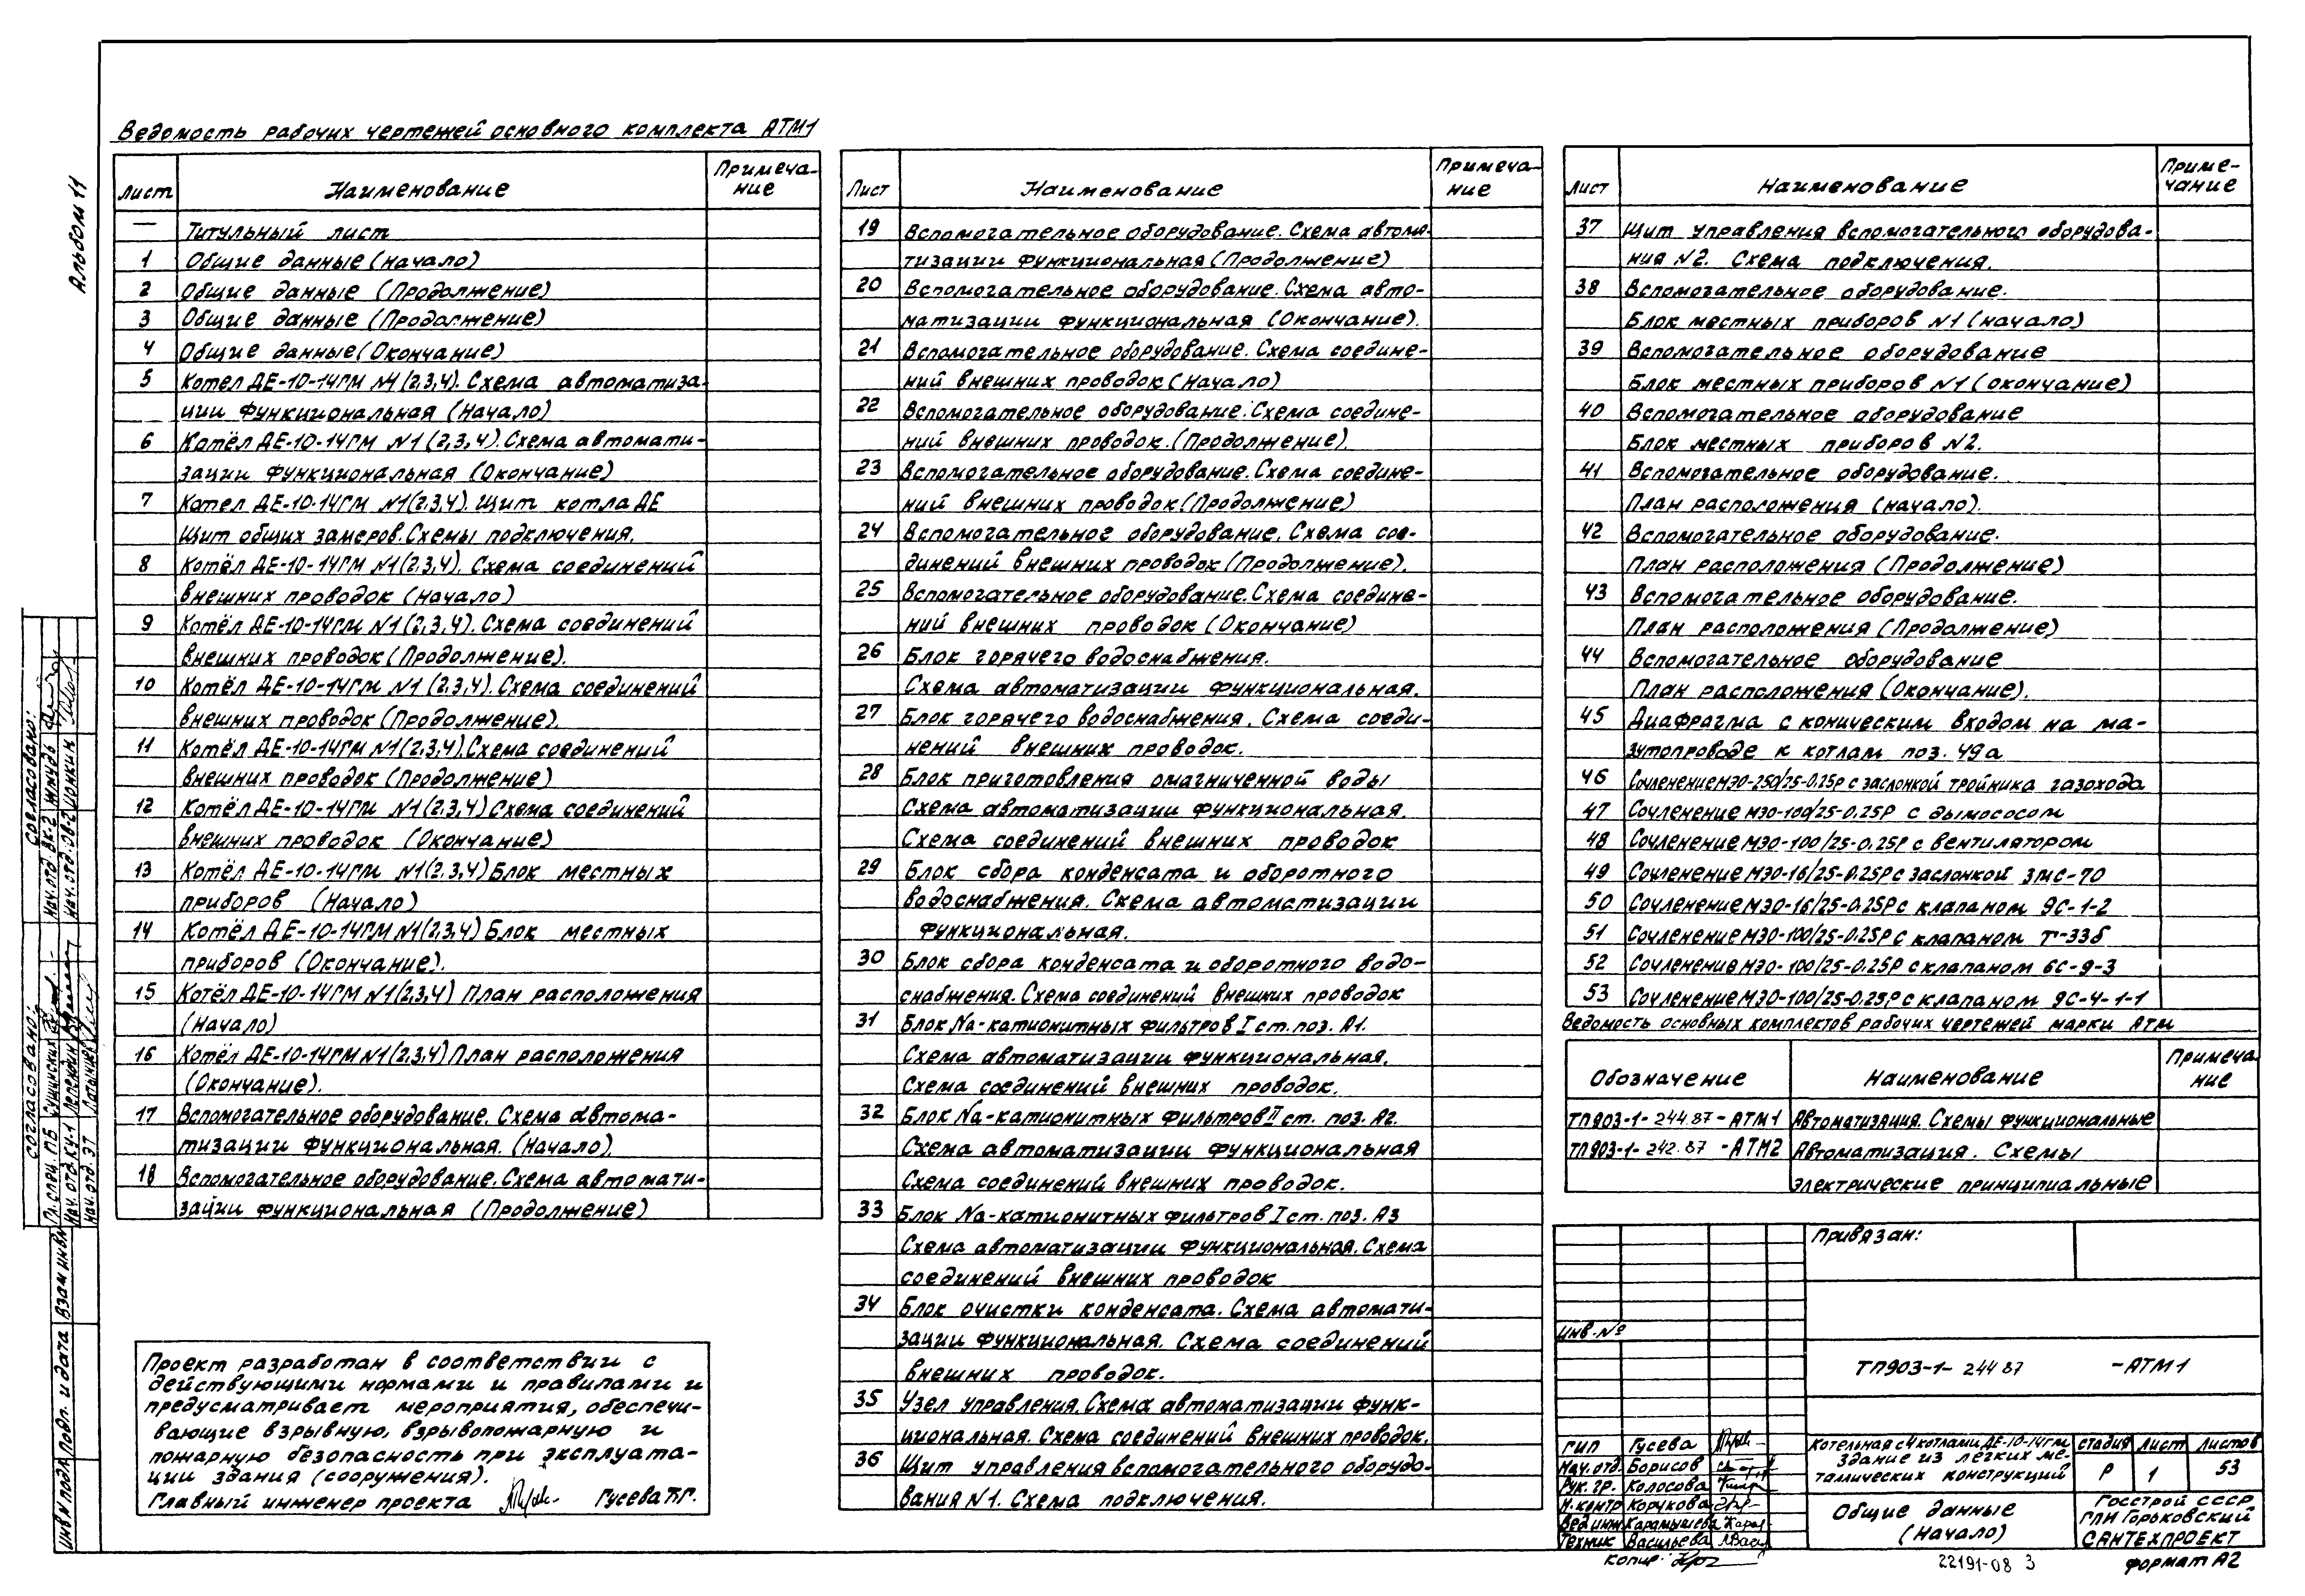 Альбом 11
Ведомость рабочих чертежей основного комплекта АТМ1
Лист Наименование Примеча-
ние
— Титульный лист
1 Общие данные (начало)
2 Общие данные (Продолжение)
3 Общие данные (Продолжение)
4 Общие данные (Окончание)
5 Котел ДЕ-10-14ГМ №1 (2,3,4). Схема автоматиза-
ции функциональная (Начало)
6 Котёл ДЕ-10-14ГМ №1 (2,3,4). Схема автомати-
зации функциональная (Окончание)
7 Котел ДЕ-10-14ГМ №1(2,3,4). Щит котла ДЕ
Щит общих замеров. Схемы подключения.
8 Котёл ДЕ-10-14ГМ №1(2,3,4). Схема соединений
внешних проводок (Начало)
9 Котёл ДЕ-10-14ГМ №1(2,3,4). Схема соединений
внешних проводок (Продолжение).
10 Котёл ДЕ-10-14ГМ №1 (2,3,4). Схема соединений
внешних проводок (Продолжение).
11 Котёл ДЕ-10-14ГМ №1(2,3,4). Схема соединений
внешних проводок (Продолжение)
12 Котёл ДЕ-10-14ГМ №1(2,3,4) Схема соединений
внешних проводок (Окончание)
13 Котёл ДЕ-10-14ГМ №1(2,3,4) Блок местных
приборов (Начало)
14 Котёл ДЕ-10-14ГМ №1(2,3,4) Блок местных
приборов (Окончание).
15 Котёл ДЕ-10-14ГМ №1(2,3,4) План расположения
(Начало)
16 Котёл ДЕ-10-14ГМ №1(2,3,4) План расположения
(Окончание).
17 Вспомогательное оборудование. Схема автома-
тизации функциональная. (Начало).
18 Вспомогательное оборудование. Схема автомати-
зации функциональная (Продолжение)
Проект разработан в соответствии с
действующими нормами и правилами и
предусматривает мероприятия, обеспечи-
вающие взрывную, взрывопожарную и
пожарную безопасность при эксплуата-
ции здания (сооружения).
Главный инженер проекта Гусева П.Г.
Лист Наименование Примеча-
ние
19 Вспомогательное оборудование. Схема автома-
тизации функциональная (Продолжение)
20 Вспомогательное оборудование. Схема авто-
матизации функциональная (Окончание).
21 Вспомогательное оборудование. Схема соедине-
ний внешних проводок (Начало)
22 Вспомогательное оборудование. Схема соедине-
ний внешних проводок. (Продолжение).
23 Вспомогательное оборудование. Схема соедине-
ний внешних проводок (Продолжение)
24 Вспомогательное оборудование. Схема сое-
динений внешних проводок (Продолжение).
25 Вспомогательное оборудование. Схема соедине-
ний внешних проводок (Окончание)
26 Блок горячего водоснабжения.
Схема автоматизации функциональная.
27 Блок горячего водоснабжения. Схема соеди-
нений внешних проводок.
28 Блок приготовления омагниченной воды
Схема автоматизации функциональная.
Схема соединений внешних проводок
29 Блок сбора конденсата и оборотного
водоснабжения. Схема автоматизации
функциональная.
30 Блок сбора конденсата и оборотного водо-
снабжения. Схема соединений внешних проводок
31 Блок Na-катионитных фильтров I ст. поз. А1.
Схема автоматизации функциональная.
Схема соединений внешних проводок.
32 Блок Na-катионитных фильтров II ст. поз. А2.
Схема автоматизации функциональная
Схема соединений внешних проводок.
33 Блок Na-катионитных фильтров I ст. поз. А3
Схема автоматизации функциональная. Схема
соединений внешних проводок
34 Блок очистки конденсата. Схема автомати-
зации функциональная. Схема соединений
внешних проводок.
35 Узел управления. Схема автоматизации функ-
циональная. Схема соединений внешних проводок.
36 Щит управления вспомогательного оборудо-
вания №1. Схема подключения.
Лист Наименование Приме-
чание
37 Щит управления вспомогательного оборудова-
ния №2. Схема подключения.
38 Вспомогательное оборудование.
Блок местных приборов №1 (начало)
39 Вспомогательное оборудование
Блок местных приборов №1 (окончание)
40 Вспомогательное оборудование
Блок местных приборов №2.
41 Вспомогательное оборудование.
План расположения (начало).
42 Вспомогательное оборудование.
План расположения (Продолжение)
43 Вспомогательное оборудование.
План расположения (Продолжение)
44 Вспомогательное оборудование
План расположения (Окончание).
45 Диафрагма с коническим входом на ма-
зутопроводе к котлам поз. 49а
46 Сочленение МЭО-250/25-0.25Р с заслонкой тройника газохода
47 Сочленение МЭО-100/25-0.25Р с дымососом
48 Сочленение МЭО-100/25-0.25Р с вентилятором
49 Сочленение МЭО-16/25-0.25Р с заслонкой ЗМС-70
50 Сочленение МЭО-16/25-0.25Р с клапаном 9С-1-2
51 Сочленение МЭО-100/25-0.25Р с клапаном Т-33б
52 Сочленение МЭО-100/25-0.25Р с клапаном 6С-9-3
53 Сочленение МЭО-100/25-0.25Р с клапаном 9С-4-1-1
Ведомость основных комплектов рабочих чертежей марки АТМ
Обозначение Наименование Примеча
ние
ТП903-1-244.87-АТМ1 Автоматизация. Схемы функциональные
ТП903-1-242.87-АТМ2 Автоматизация. Схемы
электрические принципиальные
Привязан:
инв. №
ТП903-1-244 87 -АТМ1
ГИП Гусева
Нач. отд. Борисов
Рук. гр. Колосова
Н. контр Корукова
Вед инж Карамышева
Техник Васильева
Котельная с 4 котлами ДЕ-10-14ГМ
Здание из легких ме-
таллических конструкций
Стадия Лист Листов
Р 1 53
Общие данные
(Начало)
Госстрой СССР
ГПИ Горьковский
САНТЕХПРОЕКТ
копир.
22191-08 3
формат А2
Согласовано:
Нач. отд. ВК-2 Жмудь
Нач. отд. ОВ-2 Ионкин
Согласовано:
Гл. спец. ПБ Сущинских
Нач. отд. КУ-1
Нач. отд. ЭТ Латышев
Инв N подл. Подп. и дата Взам инв N